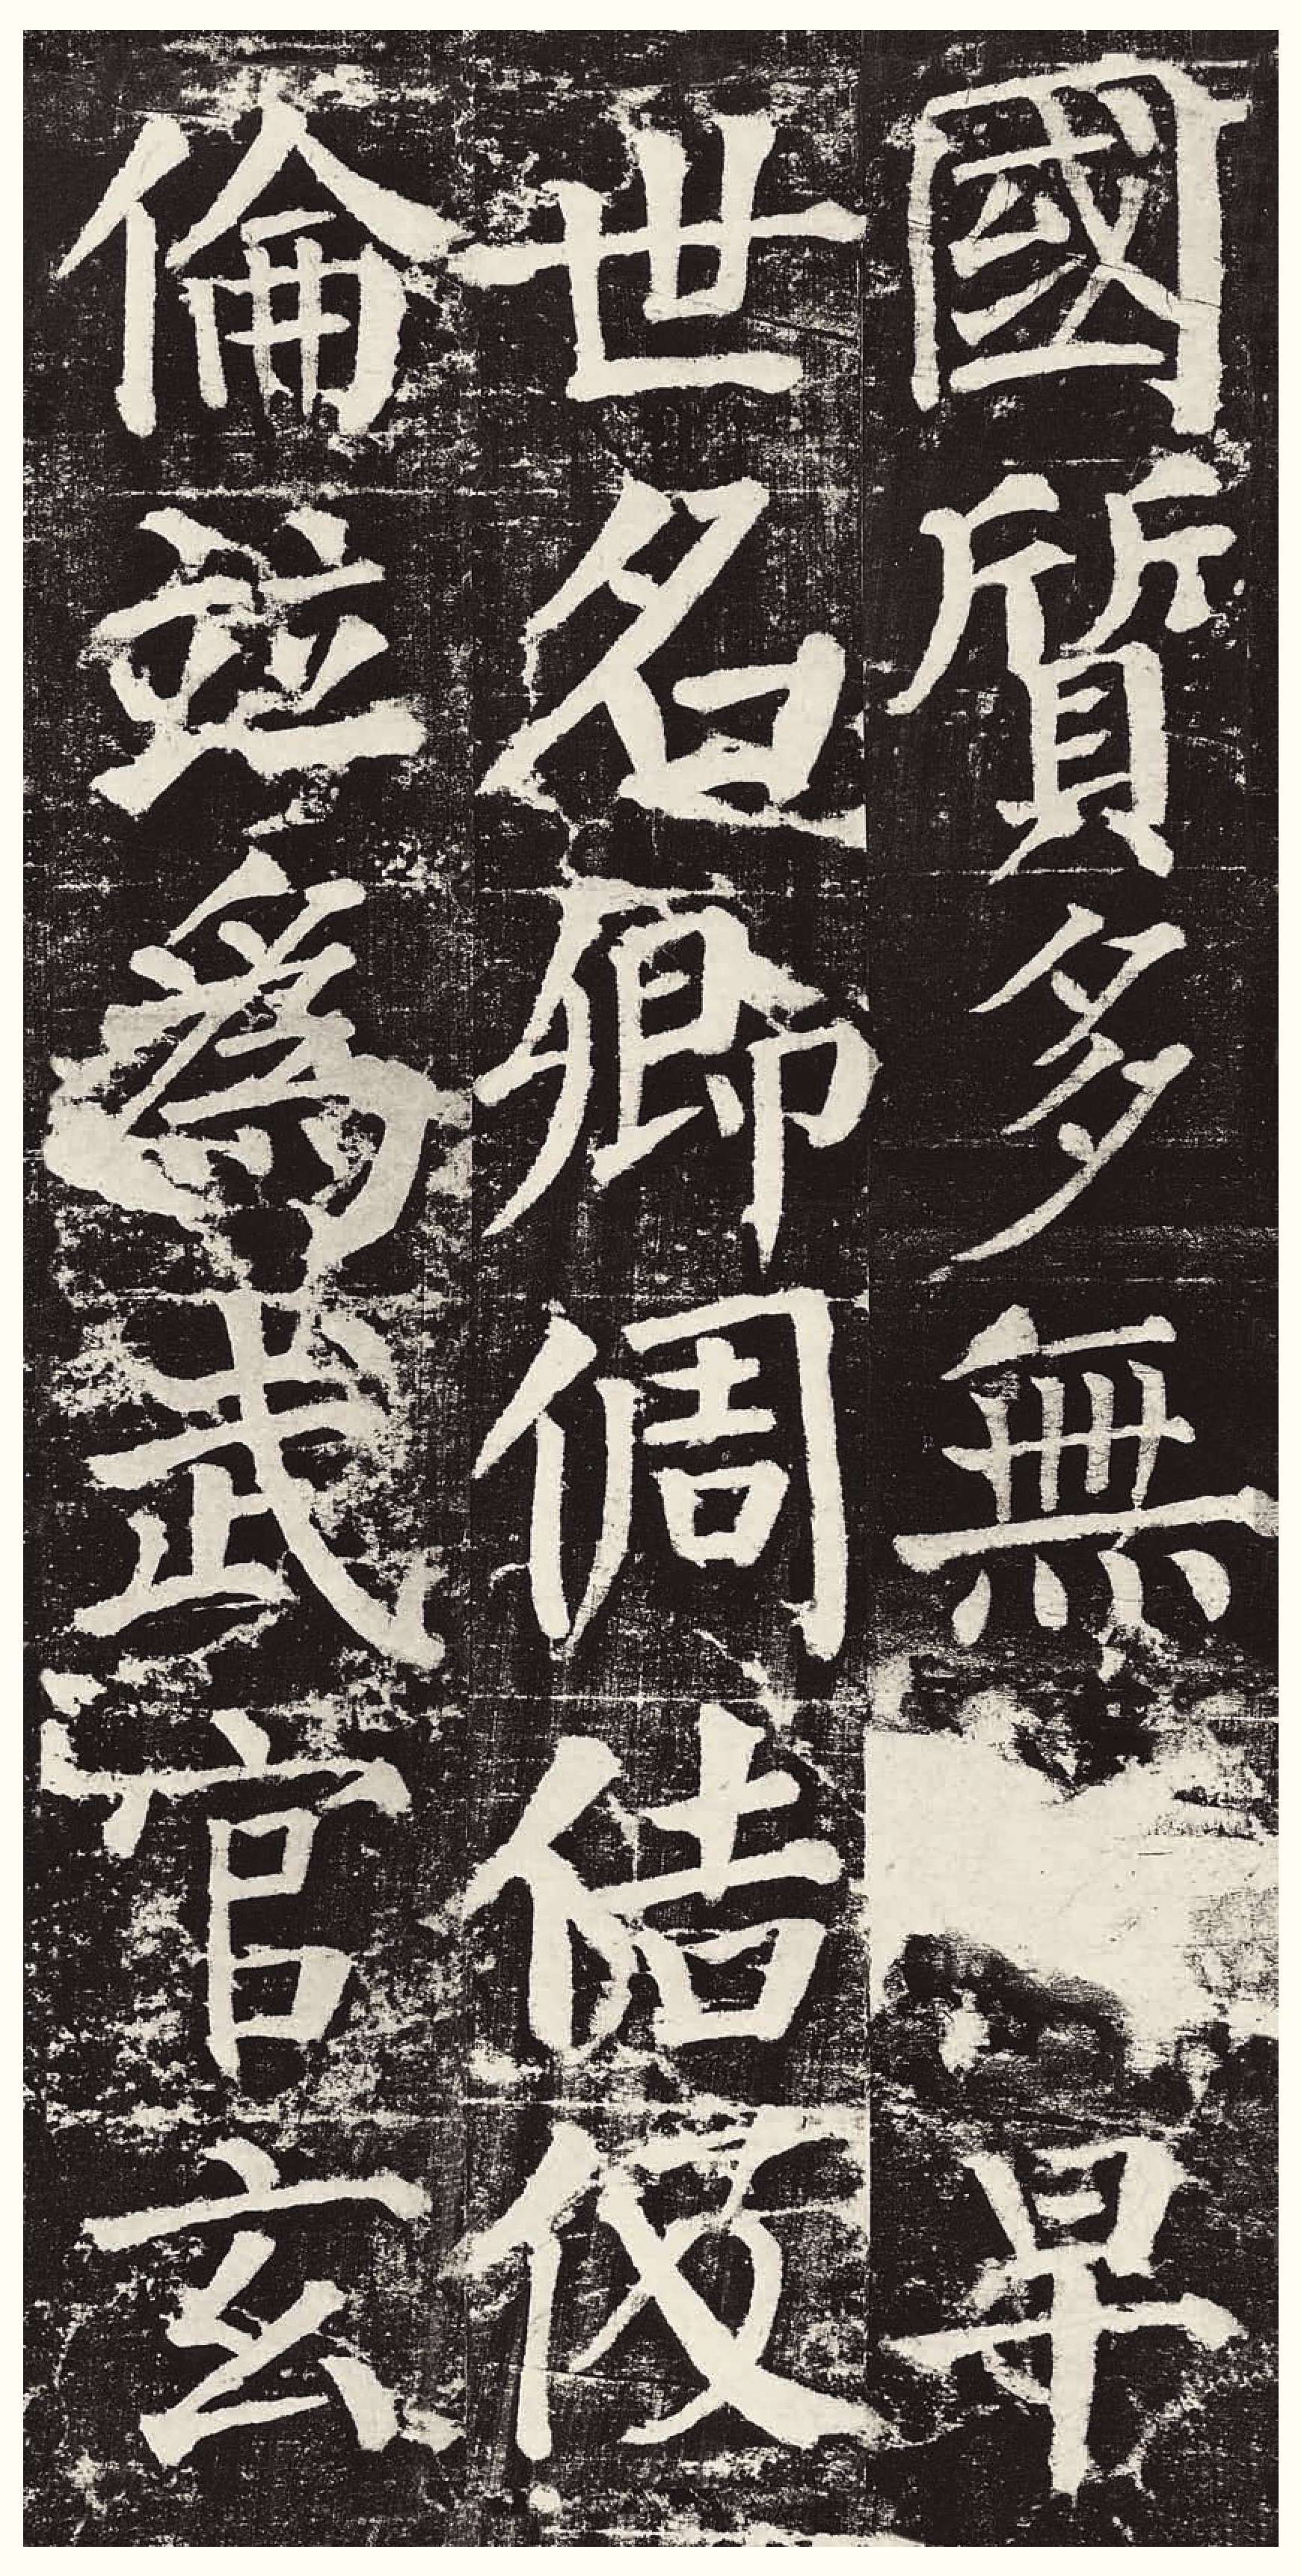 國質多無早
世名卿倜佶伋
倫並爲武官玄